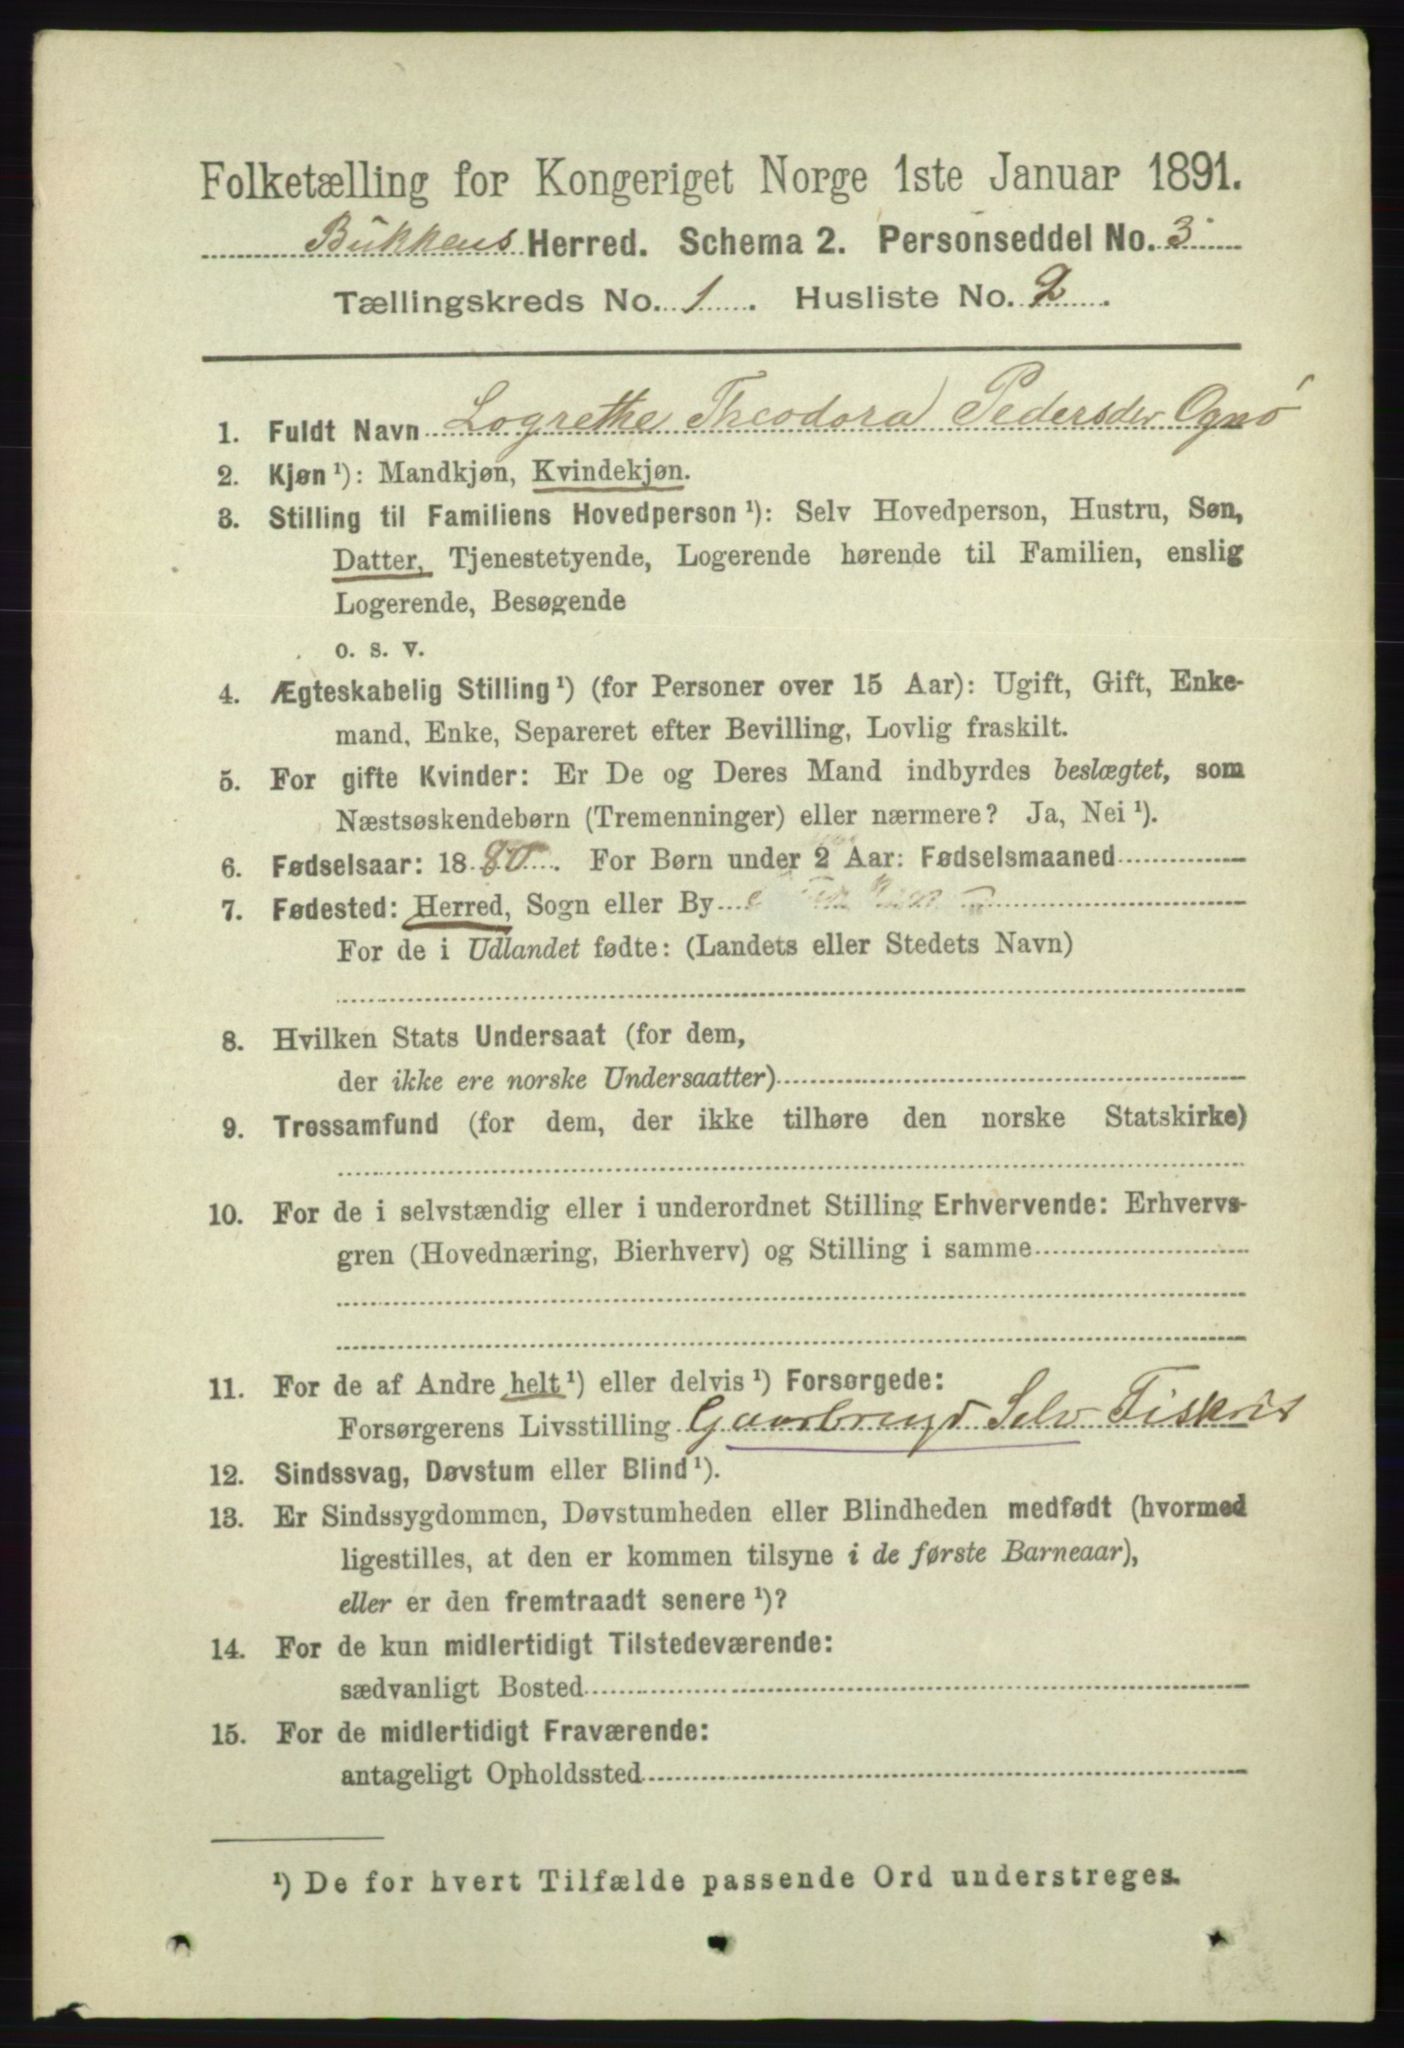 Folketælling for Kongeriget Norge 1ste Januar 1891.
Bukkens Herred. Schema 2. Personseddel No. 3
Tællingskreds No. 1. Husliste No. 2.
1. Fuldt Navn Logrethe Theodora Pedersdtr Ognø
2. Kjøn ¹): Mandkjøn, Kvindekjøn.
3. Stilling til Familiens Hovedperson ¹): Selv Hovedperson, Hustru, Søn,
Datter, Tjenestetyende, Logerende hørende til Familien, enslig
Logerende, Besøgende
o. s. v.
4. Ægteskabelig Stilling ¹) (for Personer over 15 Aar): Ugift, Gift, Enke-
mand, Enke, Separeret efter Bevilling, Lovlig fraskilt.
5. For gifte Kvinder: Er De og Deres Mand indbyrdes beslægtet, som
Næstsøskendebørn (Tremenninger) eller nærmere? Ja, Nei ¹).
6. Fødselsaar: 1880. For Børn under 2 Aar: Fødselsmaaned
7. Fødested: Herred, Sogn eller By
For de i Udlandet fødte: (Landets eller Stedets Navn)
8. Hvilken Stats Undersaat (for dem,
der ikke ere norske Undersaatter)
9. Trossamfund (for dem, der ikke tilhøre den norske Statskirke)
10. For de i selvstændig eller i underordnet Stilling Erhvervende: Erhvervs-
gren (Hovednæring, Bierhverv) og Stilling i samme
11. For de af Andre helt ¹) eller delvis ¹) Forsørgede:
Forsørgerens Livsstilling Gaardbrugr Selv
12. Sindssvag, Døvstum eller Blind ¹).
13. Er Sindssygdommen, Døvstumheden eller Blindheden medfødt (hvormed
ligestilles, at den er kommen tilsyne i de første Barneaar),
eller er den fremtraadt senere ¹)?
14. For de kun midlertidigt Tilstedeværende:
sædvanligt Bosted
15. For de midlertidigt Fraværende:
antageligt Opholdssted
¹) De for hvert Tilfælde passende Ord understreges.